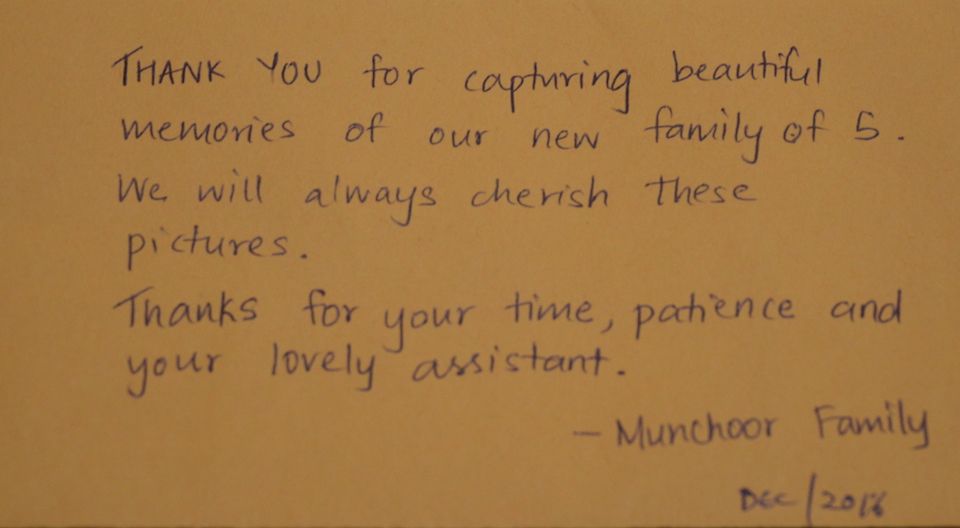 THANK YOU for capturing beautiful
memories of our new family of 5.
We will always cherish these
pictures.
Thanks for your time, patience and
your lovely assistant.
— Munchoor Family
DEC/2016